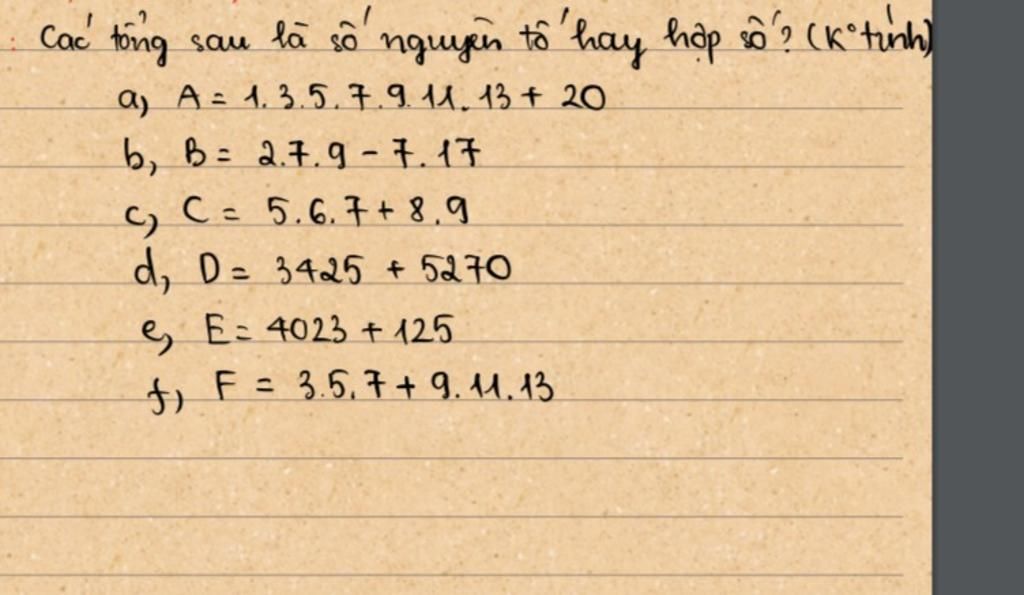 : Các tổng sau là số nguyên tố hay hợp số? (K° tính)
a, A = 1.3.5.7.9.11.13 + 20
b, B = 2.7.9 - 7.17
c, C = 5.6.7 + 8.9
d, D = 3425 + 5270
e, E = 4023 + 125
f, F = 3.5.7 + 9.11.13